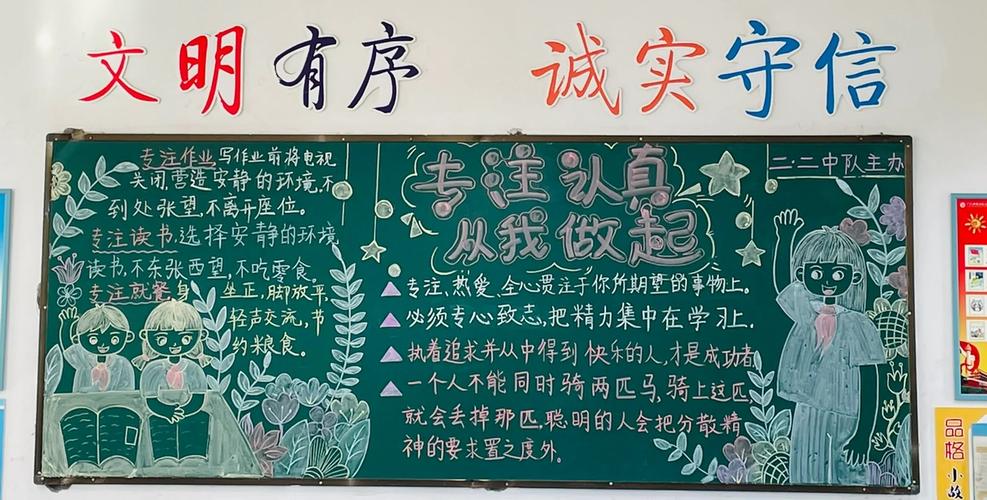 文明有序 诚实守信
专注作业 写作业前将电视
关闭,营造安静的环境,不
到处张望,不离开座位。
专注读书,选择安静的环境
读书,不东张西望,不吃零食
专注就餐 身 坐正,脚放平,
轻声交流,节
约粮食。
专注认真
从我做起
二·二中队主办
专注、热爱、全心贯注于你所期望的事物上。
必须专心致志,把精力集中在学习上.
执着追求并从中得到快乐的人,才是成功者
一个人不能同时骑两匹马,骑上这匹,
就会丢掉那匹,聪明的人会把分散精
神的要求置之度外。
品格
小故